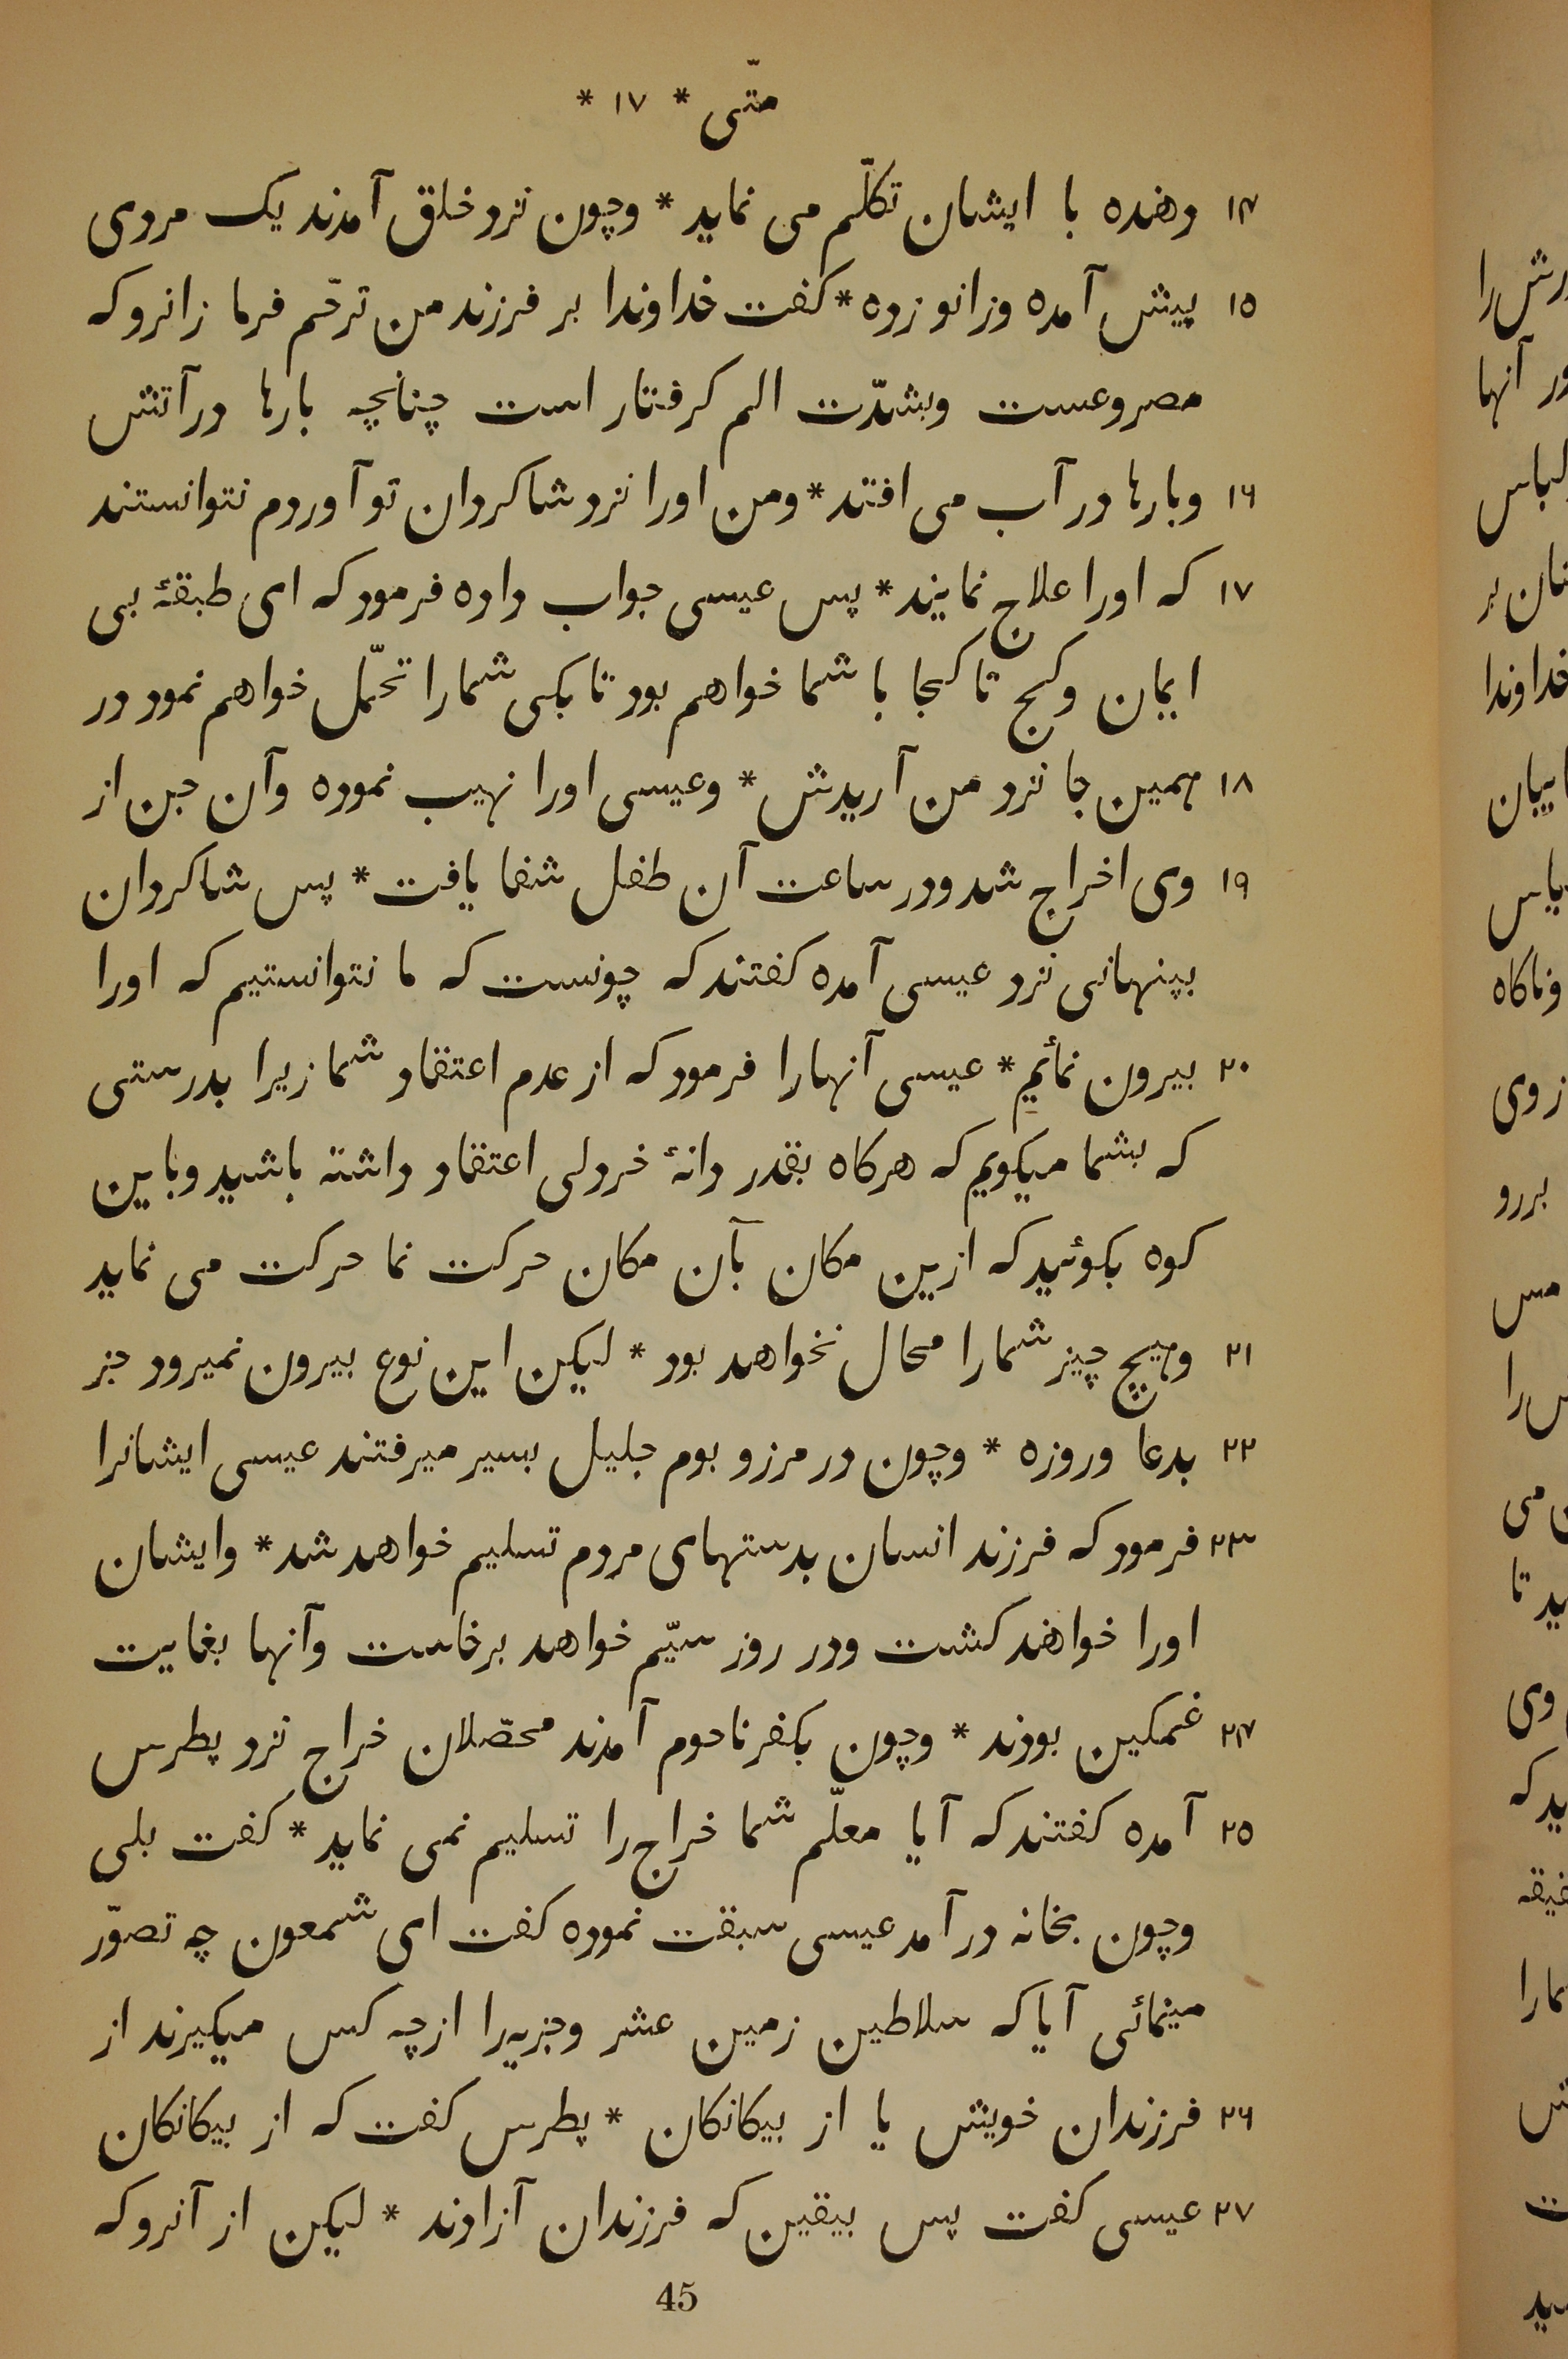 متّی * ۱۷ *
۱۴ دهنده با ایشان تکلّم می نماید * وچون نزد خلق آمدند یک مردی
۱۵ پیش آمده وزانو زده * کفت خداوندا بر فرزند من ترحّم فرما زانرو که
مصروعست وبشدّت الم کرفتار است چنانچه بارها در آتش
۱۶ وبارها در آب می افتد * ومن اورا نزد شاکردان تو آوردم نتوانستند
۱۷ که اورا علاج نمایند * پس عیسی جواب داده فرمود که ای طبقهٔ بی
ایمان وکج تا کجا با شما خواهم بود تا بکی شمارا تحمّل خواهم نمود در
۱۸ همین جا نزد من آریدش * وعیسی اورا نهیب نموده وآن جن از
۱۹ وی اخراج شد ودر ساعت آن طفل شفا یافت * پس شاکردان
بپنهانی نزد عیسی آمده کفتند که چونست که ما نتوانستیم که اورا
۲۰ بیرون نمائیم * عیسی آنهارا فرمود که از عدم اعتقاد شما زیرا بدرستی
که بشما میکویم که هرکاه بقدر دانهٔ خردلی اعتقاد داشته باشید وباین
کوه بکوئید که ازین مکان بآن مکان حرکت نما حرکت می نماید
۲۱ وهیچ چیز شمارا محال نخواهد بود * لیکن این نوع بیرون نمیرود جز
۲۲ بدعا وروزه * وچون در مرز و بوم جلیل بسیر میرفتند عیسی ایشانرا
۲۳ فرمود که فرزند انسان بدستهای مردم تسلیم خواهد شد * وایشان
اورا خواهند کشت ودر روز سیّم خواهد برخاست وآنها بغایت
۲۴ غمکین بودند * وچون بکفرناحوم آمدند محصّلان خراج نزد پطرس
۲۵ آمده کفتند که آیا معلّم شما خراج را تسلیم نمی نماید * کفت بلی
وچون بخانه در آمد عیسی سبقت نموده کفت ای شمعون چه تصوّر
مینمائی آیا که سلاطین زمین عشر وجزیه را از چه کس میکیرند از
۲۶ فرزندان خویش یا از بیکانکان * پطرس کفت که از بیکانکان
۲۷ عیسی کفت پس بیقین که فرزندان آزادند * لیکن از آنرو که
45